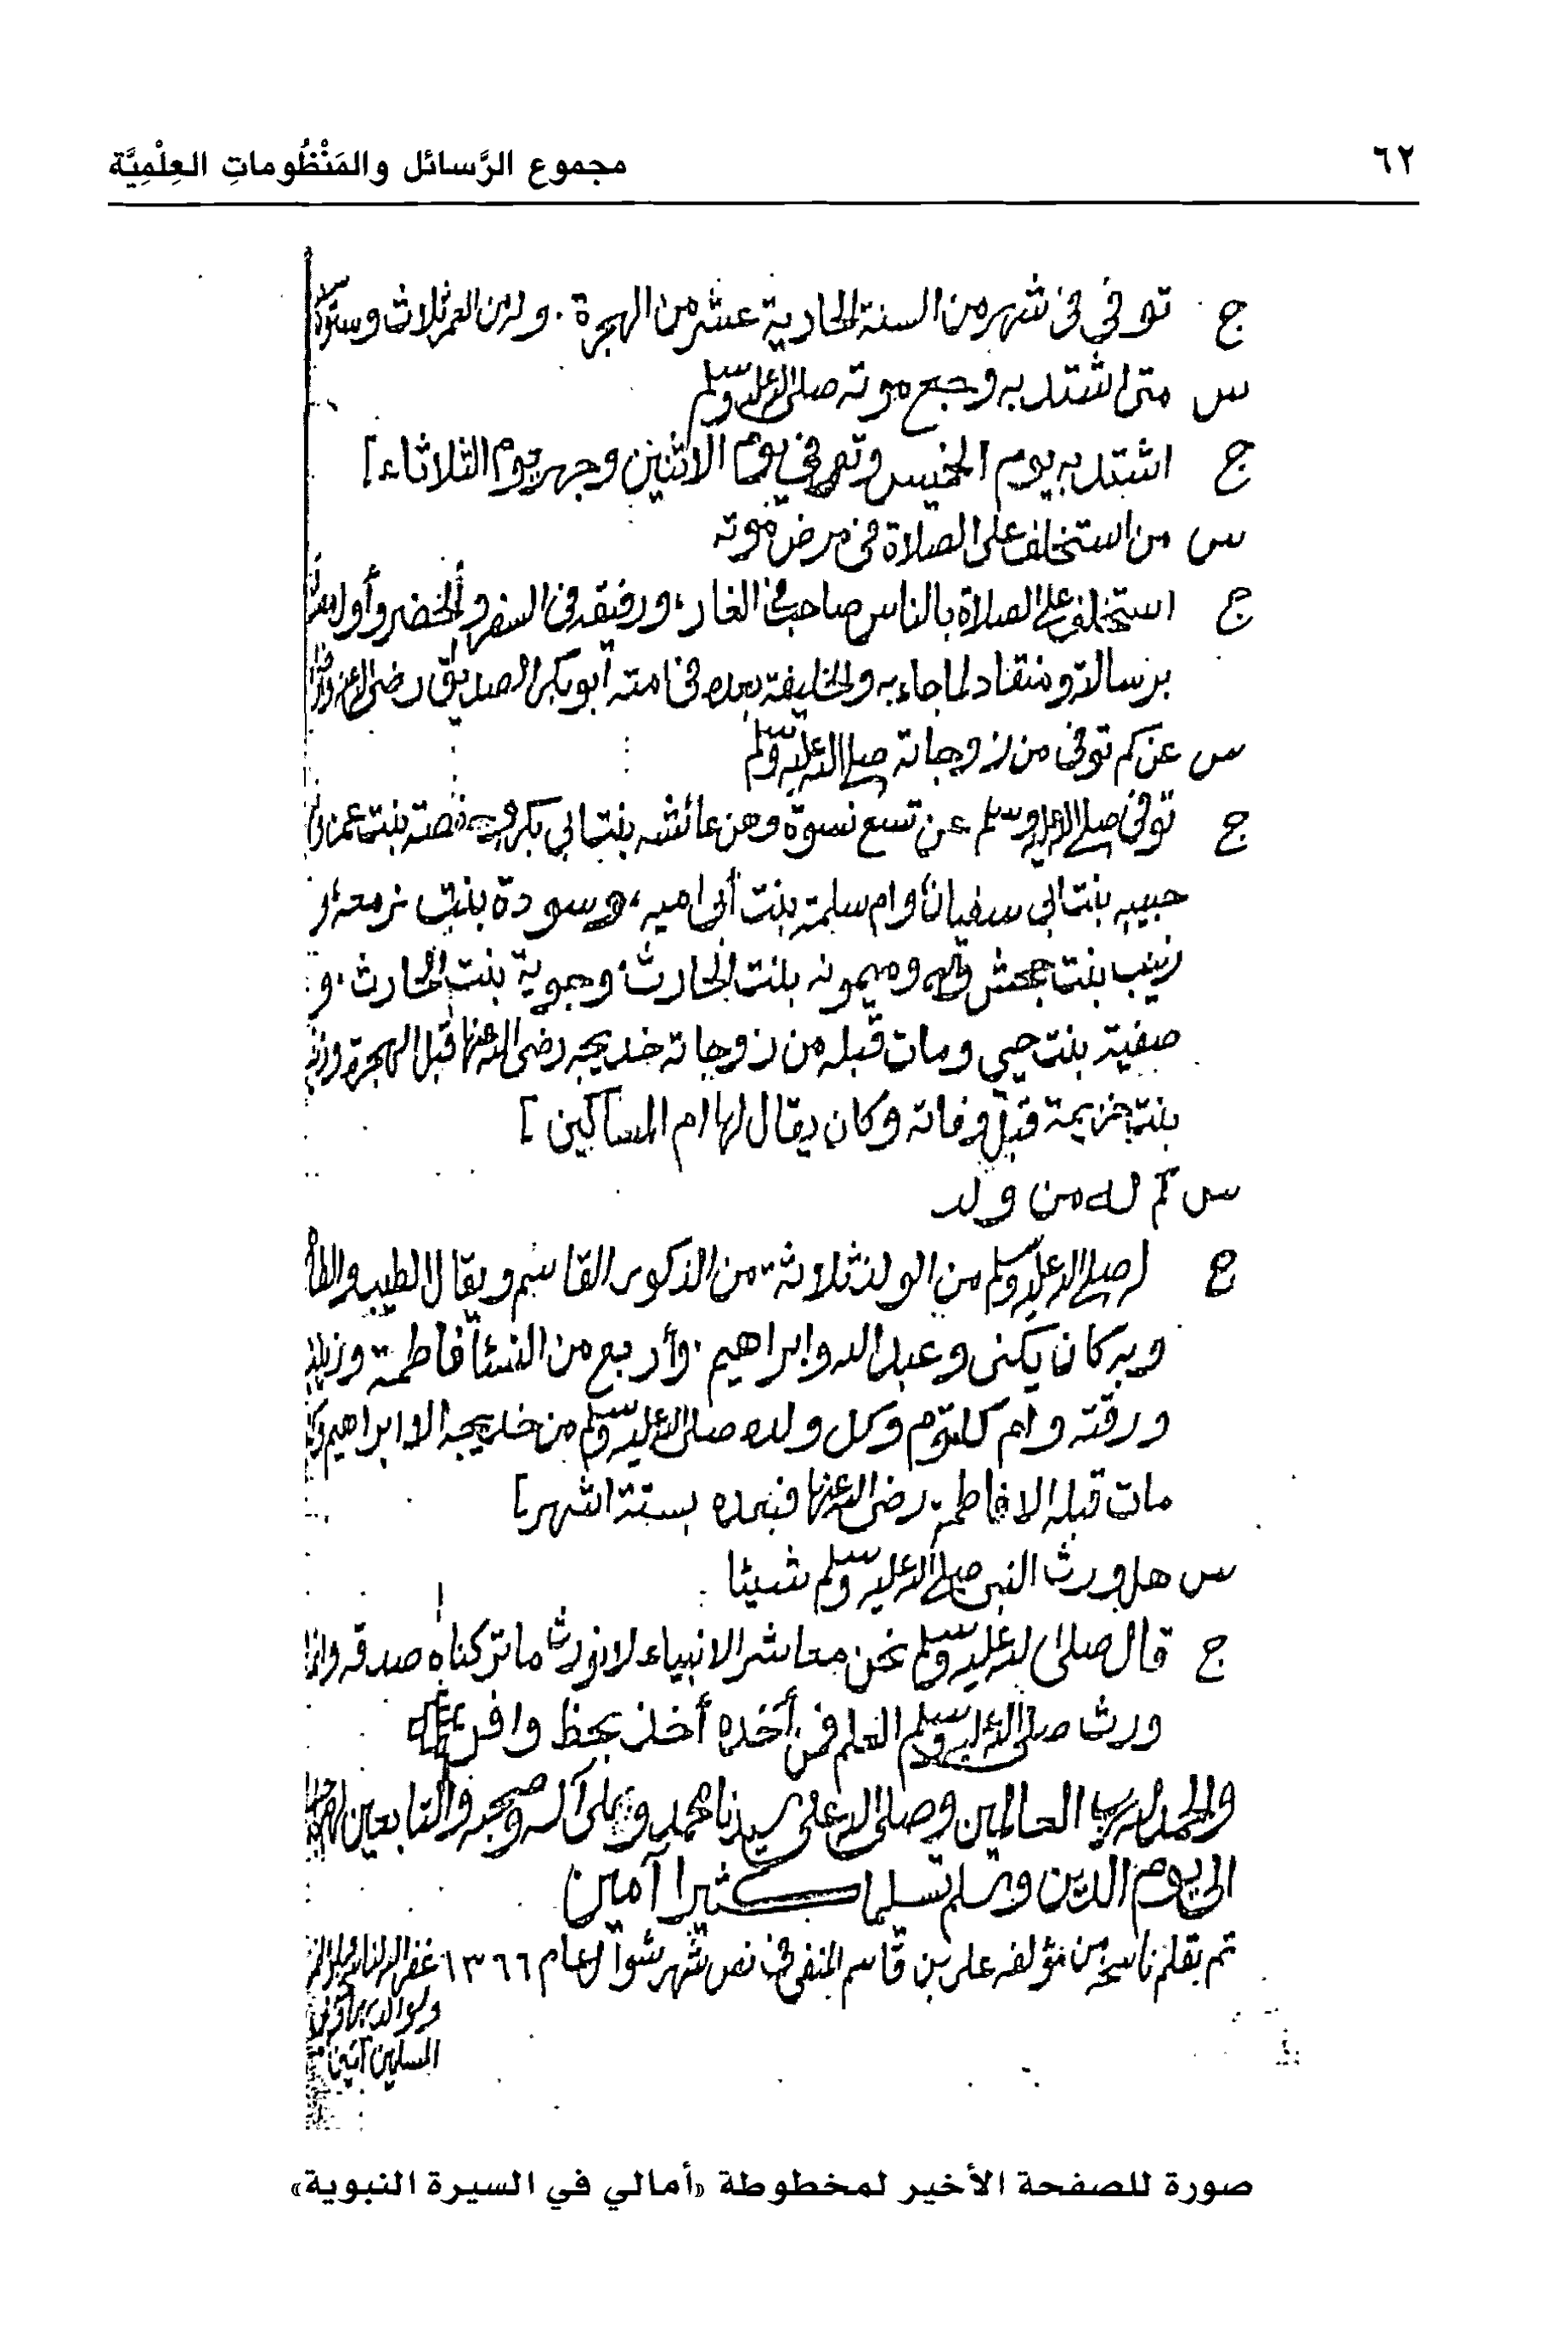 ٦٢
مجموع الرَّسائل والمَنْظُوماتِ العِلْمِيَّة
ج توفي في شهر من السنة الحادية عشر من الهجرة. وله من العمر ثلاث وستون
س متى اشتد به وجع موته صلى الله عليه وسلم
ج اشتد به يوم الخميس وتوفي يوم الاثنين وجهز يوم الثلاثاء]
س من استخلف على الصلاة في مرض موته
ج استخلف على الصلاة بالناس صاحبه في الغار، ورفيقه في السفر والحضر وأول
برسالته ومنقاد لما جاء به والخليفة بعده في امته أبو بكر الصديق رضي الله عنه
س عن كم توفي من زوجاته صلى الله عليه وسلم
ج توفي صلى الله عليه وسلم عن تسع نسوة وهن عائشه بنت ابي بكر وحفصة بنت عمر
حبيبه بنت ابي سفيان وام سلمة بنت أبي اميه، وسودة بنت زمعه و
زينب بنت جحش وميمونه بنت الحارث. وجويرية بنت الحارث. و
صفية بنت حيي ومات قبله من زوجاته خديجه رضي الله عنها قبل الهجرة
بنت خزيمة قبل وفاته وكان يقال لها ام المساكين]
س كم له من ولد
ج له صلى الله عليه وسلم من الولد ثلاثة من الذكور القاسم ويقال الطيب
وبه كان يكنى وعبد الله وابراهيم. وأربع من النسا فاطمة وزينب
ورقية وام كلثوم وكل ولده صلى الله عليه وسلم من خديجه الا ابراهيم
مات قبله الا فاطمة رضي الله عنها فبعده بستة اشهر]
س هل ورث النبي صلى الله عليه وسلم شيئا
ج قال صلى الله عليه وسلم نحن معاشر الانبياء لا نورث ما تركناه صدقه وانما
ورث صلى الله عليه وسلم العلم فمن أخذه أخذ بحظ وافر
والحمد لله رب العالمين وصلى الله على سيدنا محمد وعلى آله وصحبه والتابعين
الى يوم الدين وسلم تسليما كثيرا آمين
تم بقلم ناسخه من مؤلفه علي بن قاسم في شهر شوال عام ١٣٦٦ غفر الله
ولوالديه
المسلمين آمين
صورة للصفحة الأخير لمخطوطة «أمالي في السيرة النبوية»